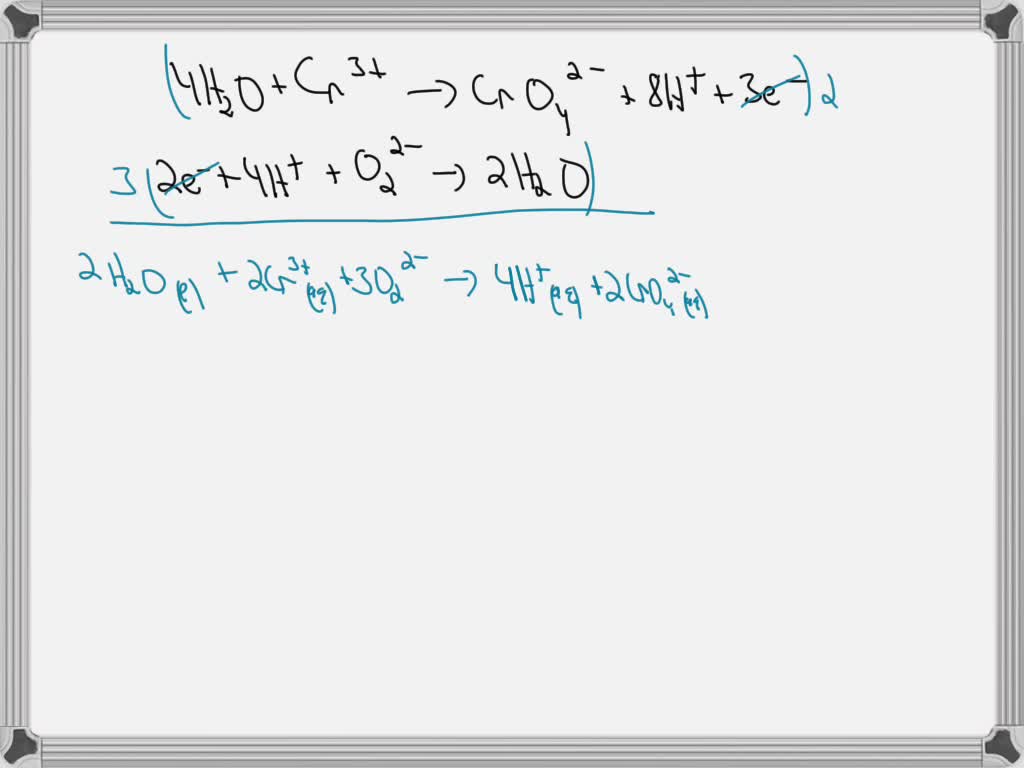 (4H₂O + Cr³⁺ → CrO₄²⁻ + 8H⁺ + 3e⁻) 2
3 (2e⁻ + 4H⁺ + O₂²⁻ → 2H₂O)
2H₂O(l) + 2Cr³⁺(aq) + 3O₂²⁻ → 4H⁺(aq) + 2CrO₄²⁻(aq)